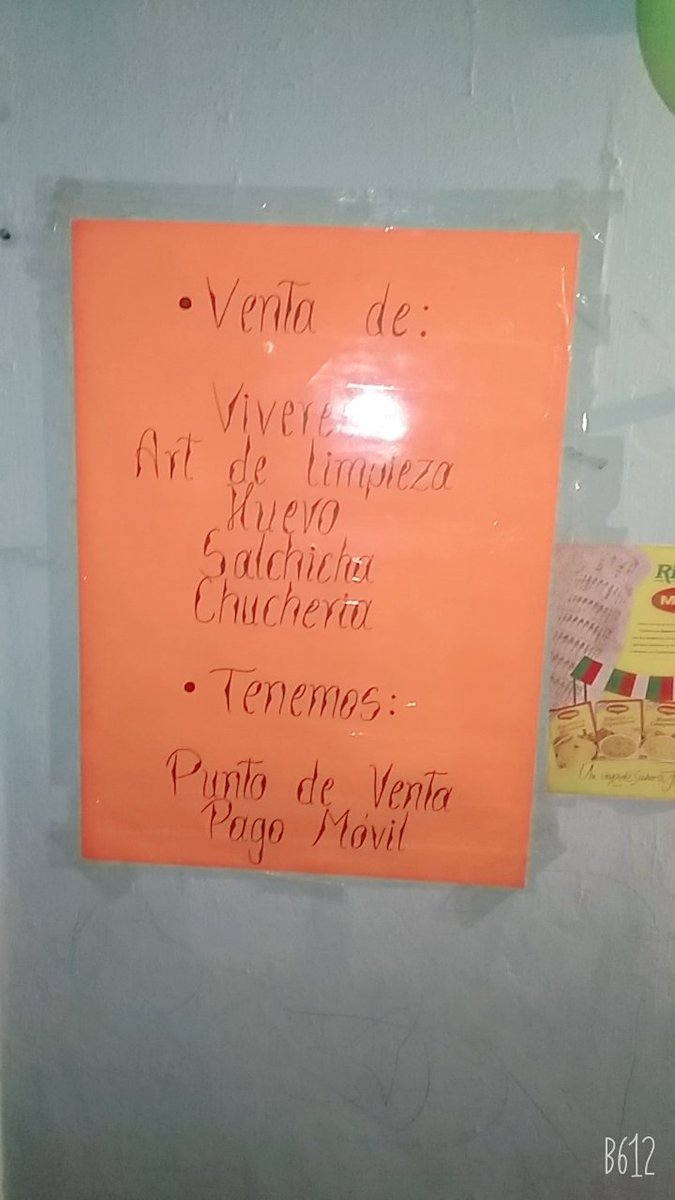 • Venta de:
Viveres
Art de limpieza
Huevo
Salchicha
Chucheria
• Tenemos:
Punto de Venta
Pago Móvil
B612